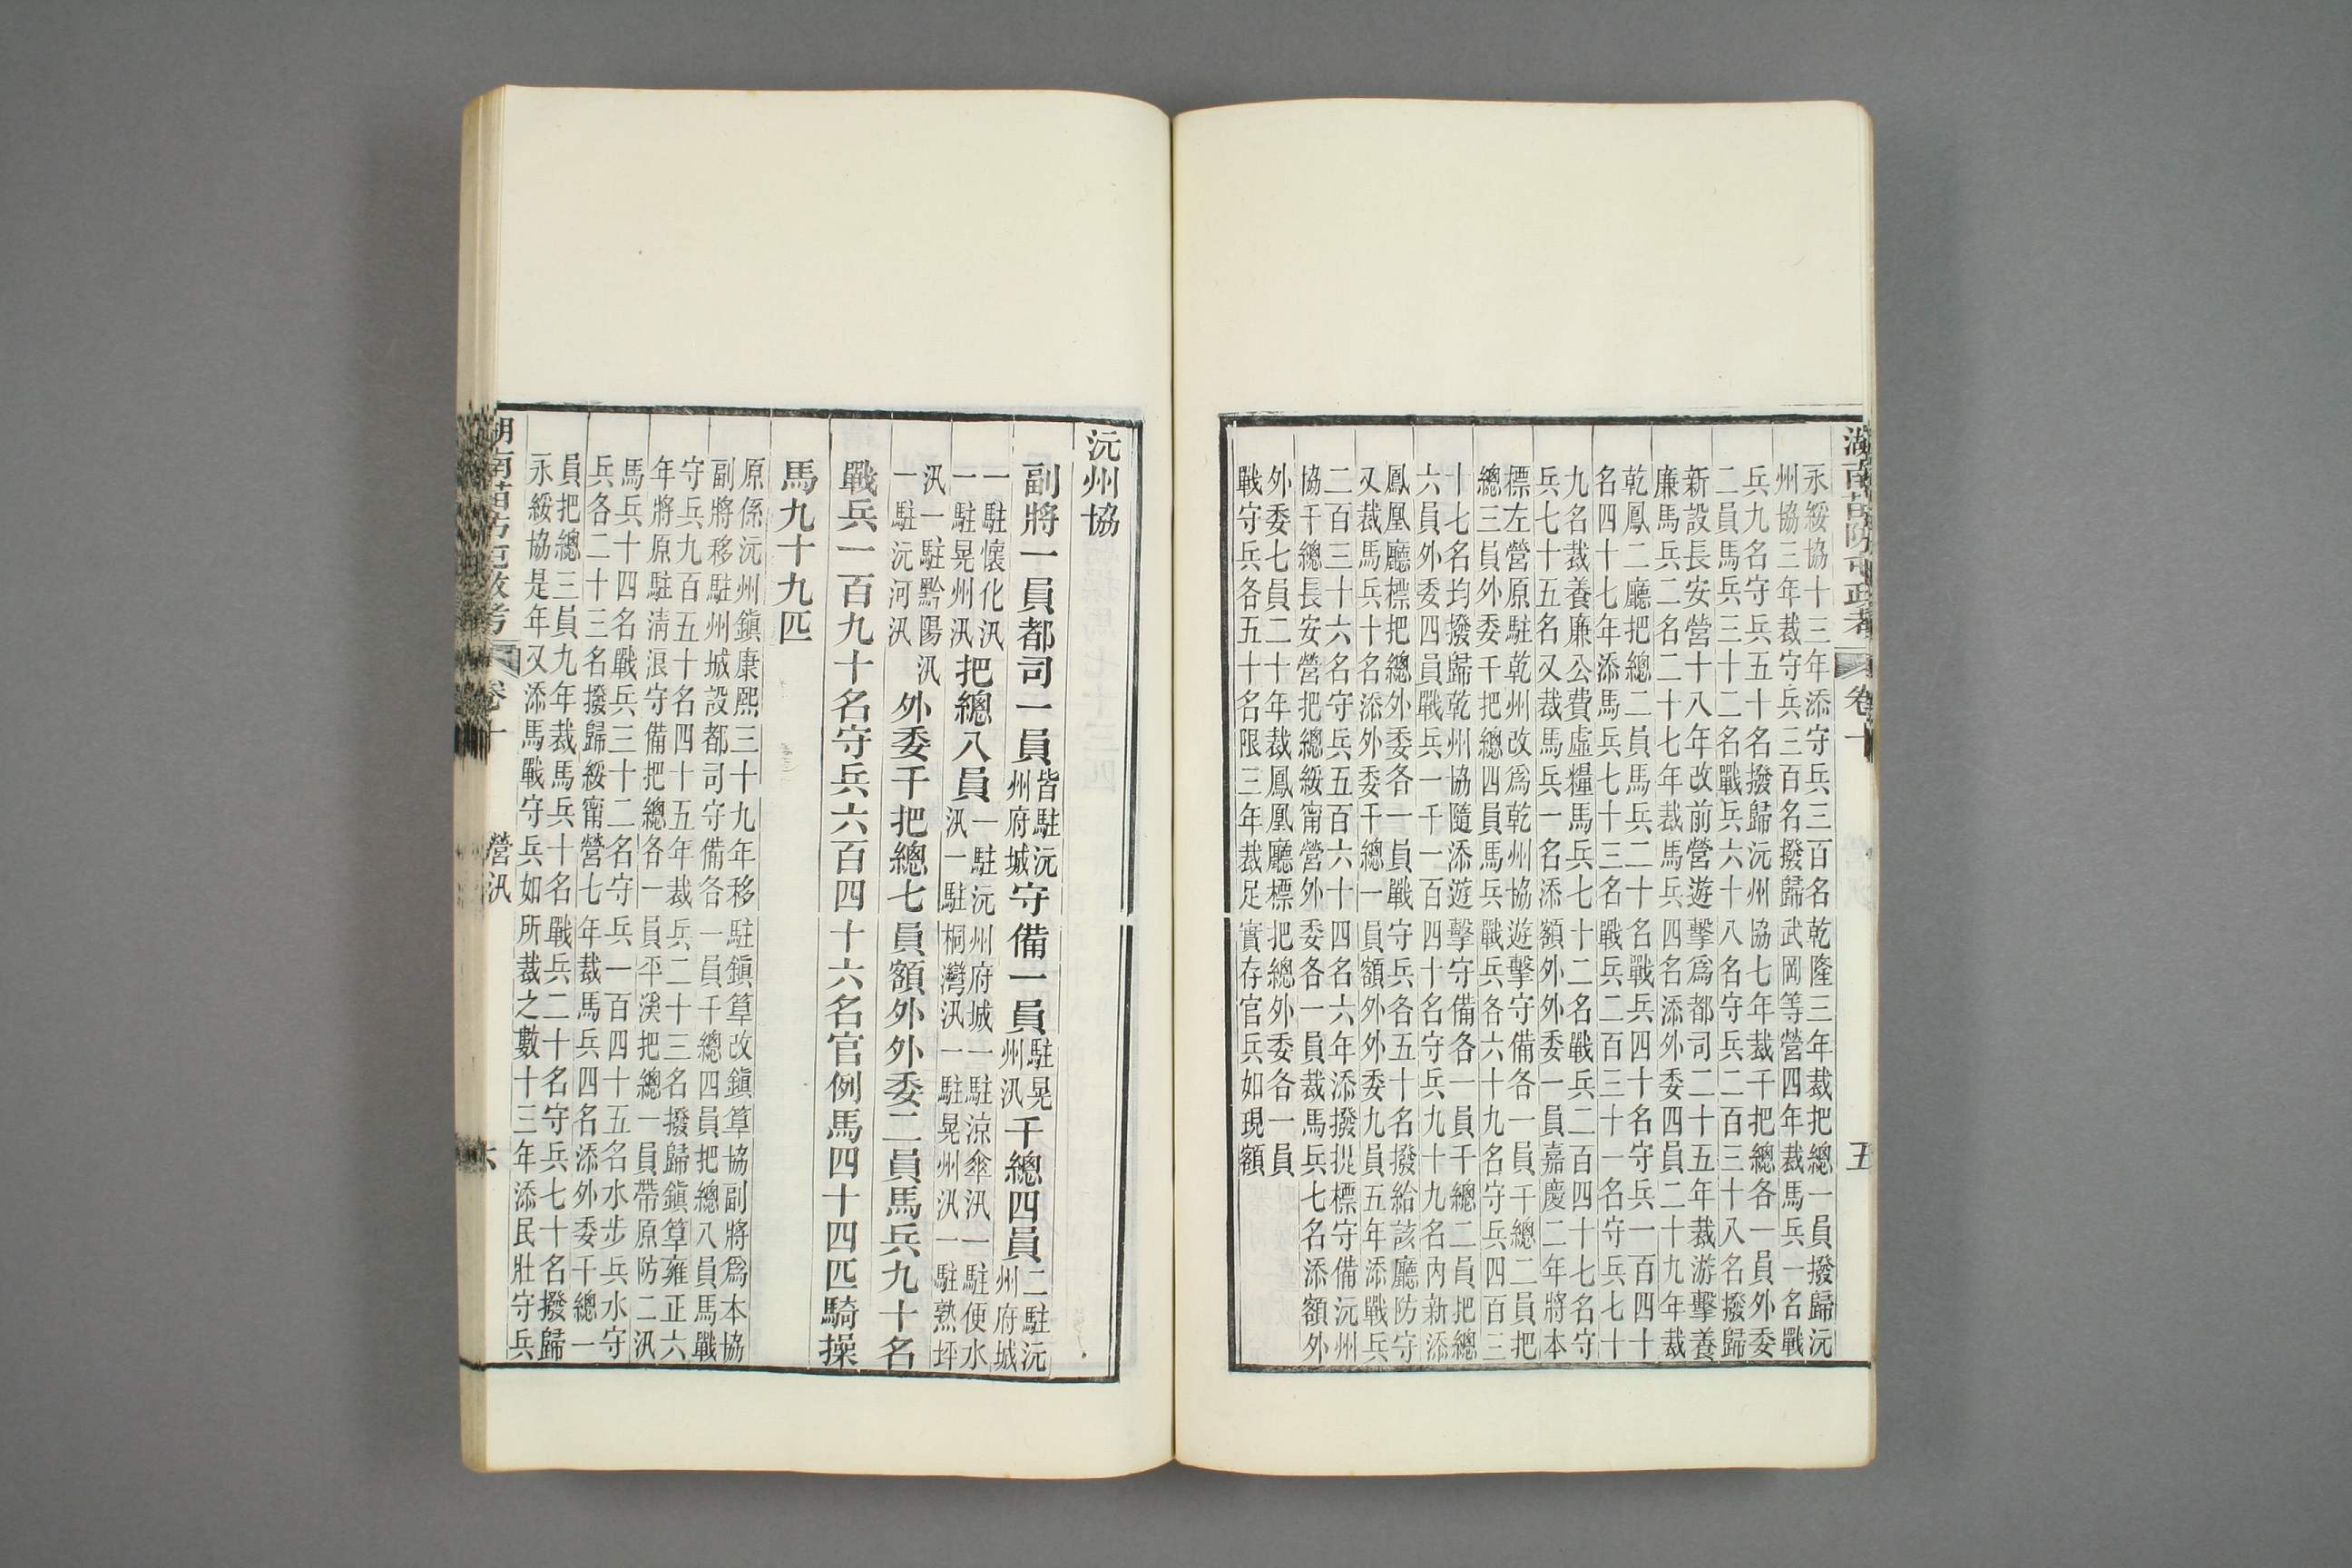 湖南苗防屯政考 卷十 五
永綏協十三年添守兵三百名乾隆三年裁把總一員撥歸沅
州協三年裁守兵三百名撥歸武岡等營四年裁馬兵一名戰
兵九名守兵五十名撥歸沅州協七年裁千把總各一員外委
二員馬兵三十二名戰兵六十八名守兵二百三十八名撥歸
新設長安營十八年改前營遊擊爲都司二十五年裁游擊養
廉馬兵二名二十七年裁馬兵四名添外委四員二十九年裁
乾鳳二廳把總二員馬兵二十名戰兵四十名守兵一百四十
名四十七年添馬兵七十三名戰兵二百三十一名守兵七十
九名裁養廉公費虛糧馬兵七十二名戰兵二百四十七名守
兵七十五名又裁馬兵一名添額外外委一員嘉慶二年將本
標左營原駐乾州改爲乾州協遊擊守備各一員千總二員把
總三員外委千把總四員馬兵戰兵各六十九名守兵四百三
十七名均撥歸乾州協隨添遊擊守備各一員千總二員把總
六員外委四員戰兵一千一百四十名守兵九十九名內新添
鳳凰廳標把總外委各一員戰守兵各五十名撥給該廳防守
又裁馬兵十名添外委千總一員額外外委九員五年添戰兵
二百三十六名守兵五百六十四名六年添撥提標守備沅州
協千總長安營把總綏甯營外委各一員裁馬兵七名添額外
外委七員二十年裁鳳凰廳標把總外委各一員
戰守兵各五十名限三年裁足實存官兵如現額
沅州協
副將一員都司一員皆駐沅州府城守備一員駐晃州汛千總四員二駐沅州府城
一駐懷化汛一駐晃州汛把總八員一駐沅州府城一駐涼傘汛一駐便水汛一駐桐灣汛一駐晃州汛一駐熟坪
汛一駐黔陽汛一駐沅河汛外委千把總七員額外外委二員馬兵九十名
戰兵一百九十名守兵六百四十六名官例馬四十四匹騎操
馬九十九匹
原係沅州鎮康熙三十九年移駐鎮筸改鎮筸協副將爲本協
副將移駐州城設都司守備各一員千總四員把總八員馬戰
守兵九百五十名四十五年裁兵二十三名撥歸鎮筸雍正六
年將原駐淸浪守備把總各一員平溪把總一員帶原防二汛
馬兵十四名戰兵三十二名守兵一百四十五名水步兵水守
兵各二十三名撥歸綏甯營七年裁馬兵四名添外委千總一
員把總三員九年裁馬兵十名戰兵二十名守兵七十名撥歸
永綏協是年又添馬戰守兵如所裁之數十三年添民壯守兵
湖南苗防屯政考 卷十 營汛 六